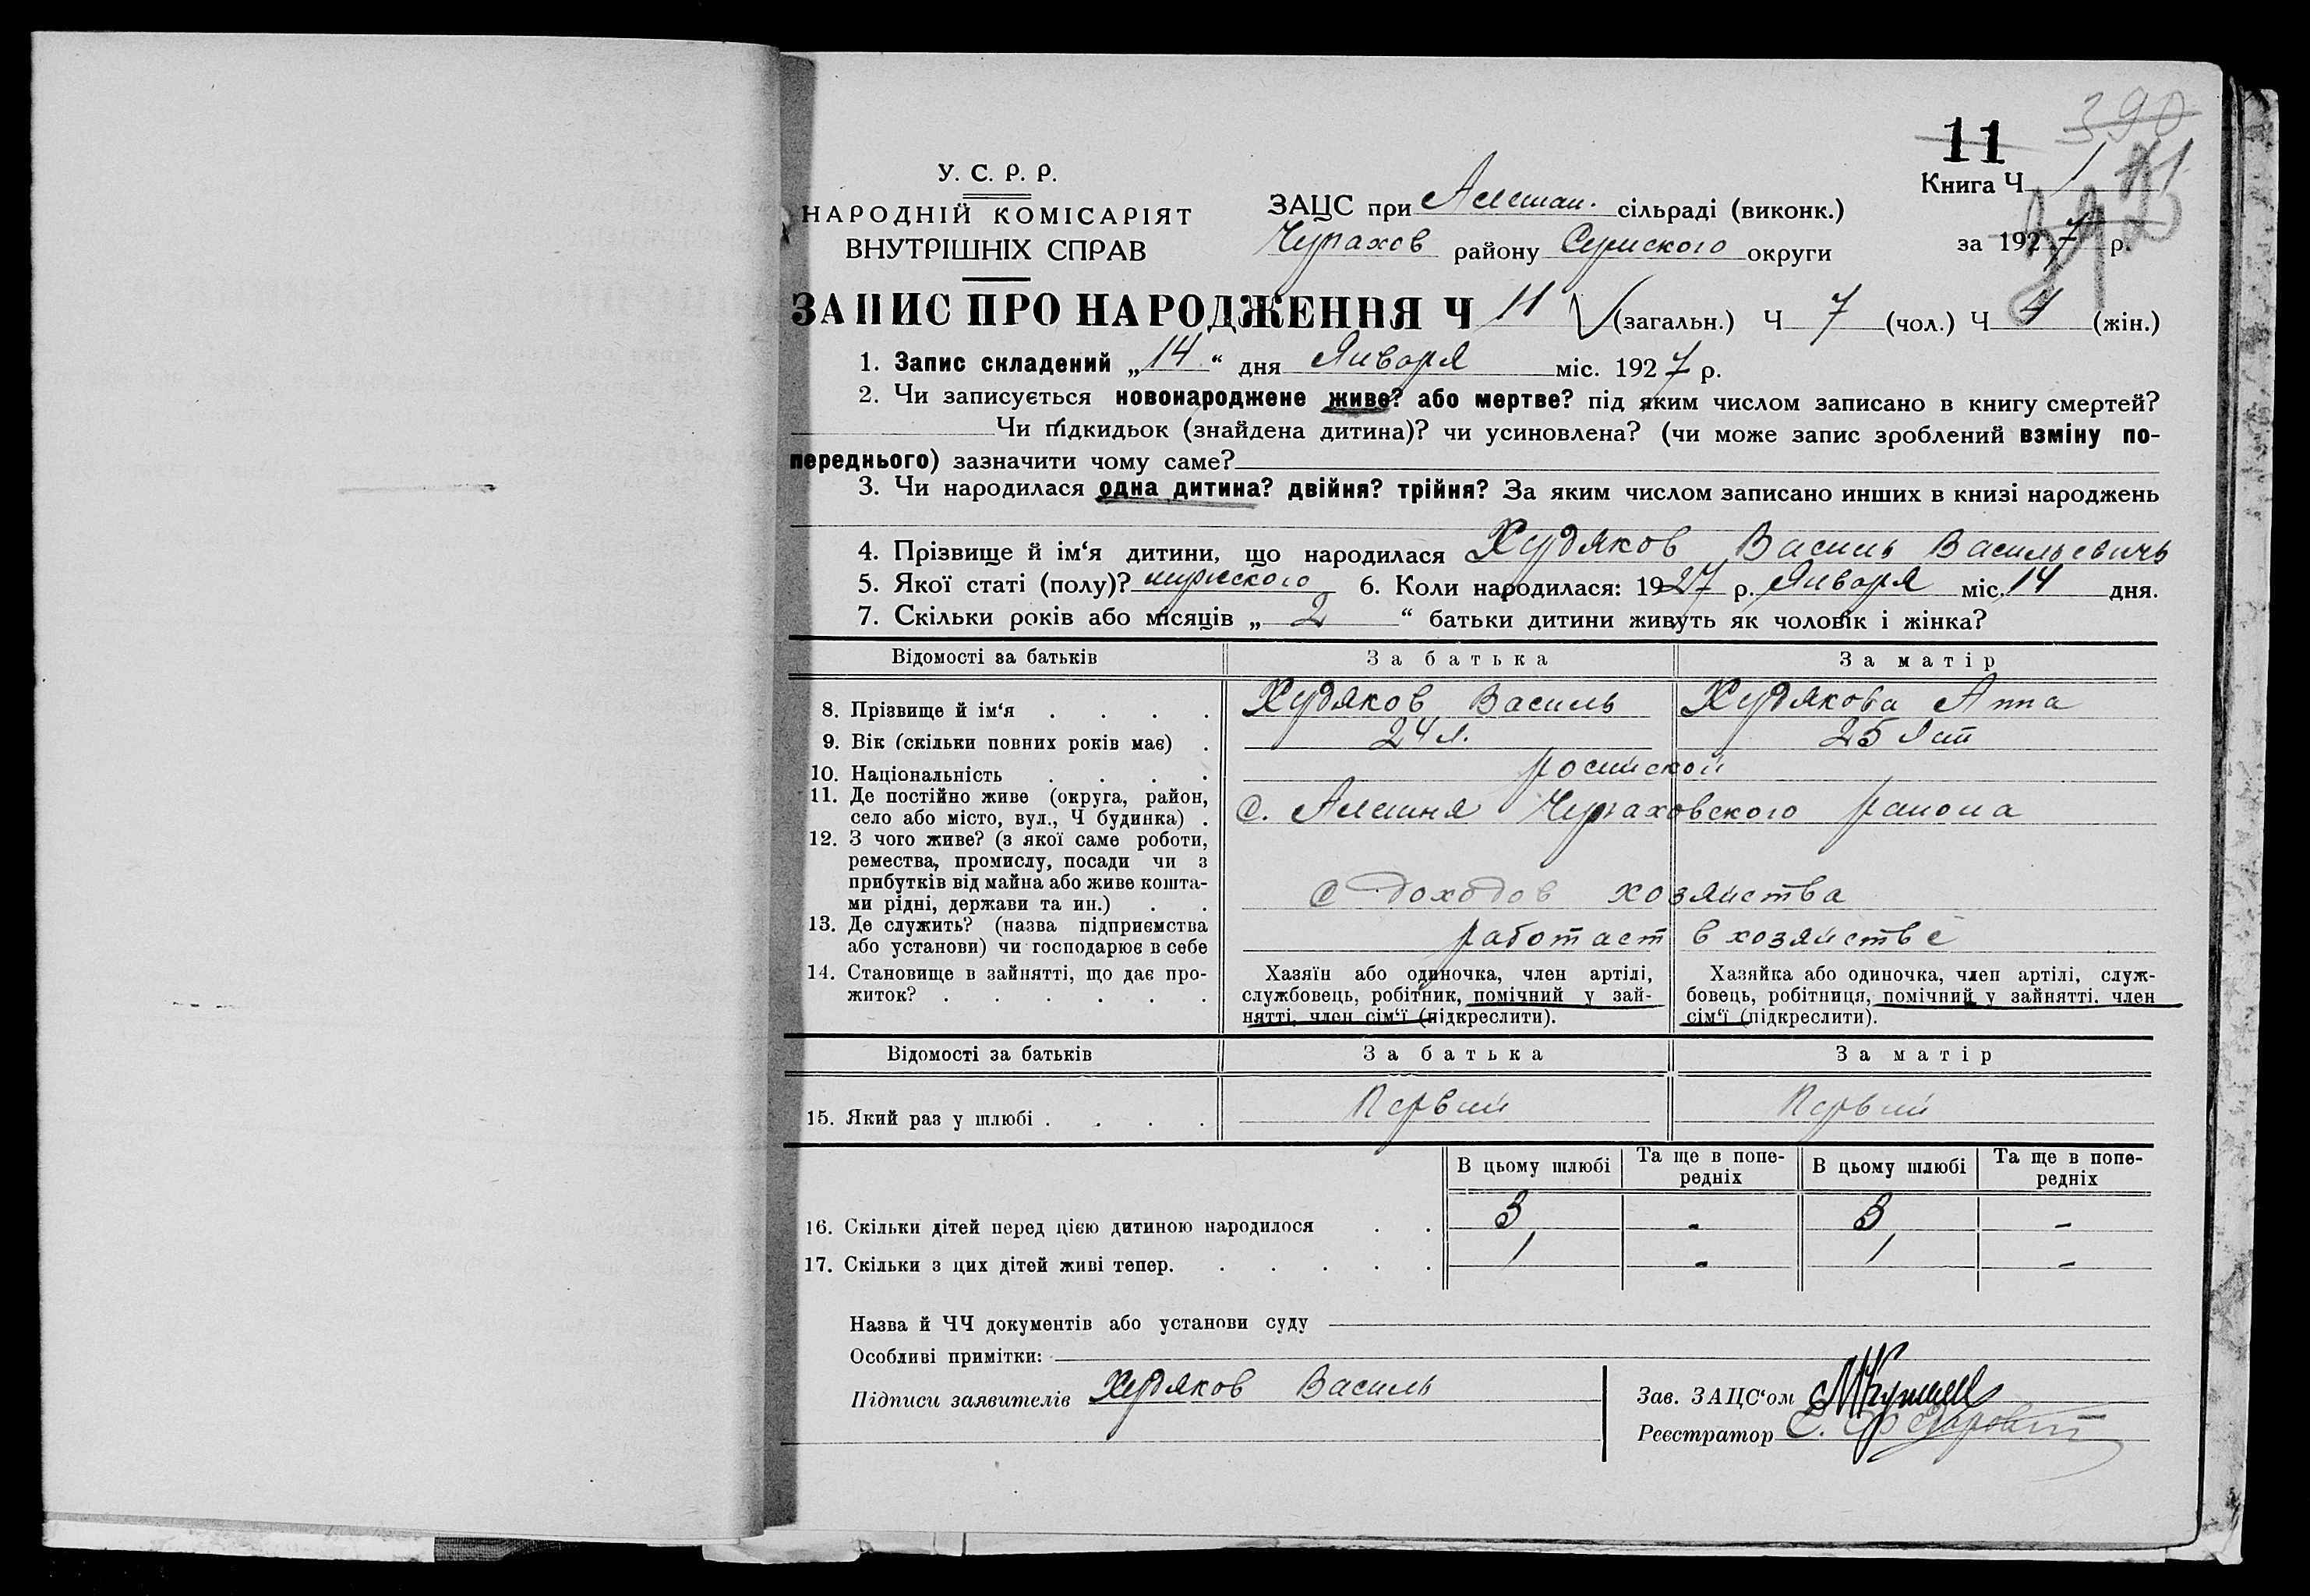 390
11
71
У. С. Р. Р.
Книга Ч 1
НАРОДНІЙ КОМІСАРІЯТ
ВНУТРІШНІХ СПРАВ
ЗАЦС при Алешан. сільраді (виконк.)
Чупахов району Сумского округи
за 1927 р.
ЗАПИС ПРО НАРОДЖЕННЯ Ч 11 (загальн.) Ч 7 (чол.) Ч 4 (жін.)
1. Запис складений „14“ дня Января міс. 1927 р.
2. Чи записується новонароджене живе? або мертве? під яким числом записано в книгу смертей?
Чи підкидьок (знайдена дитина)? чи усиновлена? (чи може запис зроблений взміну по-
переднього) зазначити чому саме?
3. Чи народилася одна дитина? двійня? трійня? За яким числом записано инших в книзі народжень
4. Прізвище й ім‘я дитини, що народилася Худяков Василь Васильевичь
5. Якої статі (полу)? мужского 6. Коли народилася: 1927 р. Января міс. 14 дня.
7. Скільки років або місяців „ 2 “ батьки дитини живуть як чоловік і жінка?
Відомості за батьків За батька За матір
8. Прізвище й ім‘я . . . . Худяков Василь Худякова Анна
9. Вік (скільки повних років має) . 24 л. 25 лет
10. Національність . . . . росийской
11. Де постійно живе (округа, район,
село або місто, вул., Ч будинка) . С. Алешня Чупаховского района
12. З чого живе? (з якої саме роботи,
ремества, промислу, посади чи з
прибутків від майна або живе кошта-
ми рідні, держави та ин.) . . С доходов хозяйства
13. Де служить? (назва підприємства
або установи) чи господарює в себе работает в хозяйстве
14. Становище в зайнятті, що дає про-
житок? . . . . . .
Хазяїн або одиночка, член артілі,
службовець, робітник, помічний у зай-
нятті, член сім‘ї (підкреслити).
Хазяйка або одиночка, член артілі, служ-
бовець, робітниця, помічний у зайнятті, член
сім‘ї (підкреслити).
Відомості за батьків За батька За матір
15. Який раз у шлюбі . . . . Первий Первий
В цьому шлюбі Та ще в попе-
редніх В цьому шлюбі Та ще в попе-
редніх
16. Скільки дітей перед цією дитиною народилося . . 3 - 3 -
17. Скільки з цих дітей живі тепер. . . . . . 1 - 1 -
Назва й ЧЧ документів або установи суду
Особливі примітки:
Підписи заявителів Худяков Василь
Зав. ЗАЦС‘ом
Реєстратор